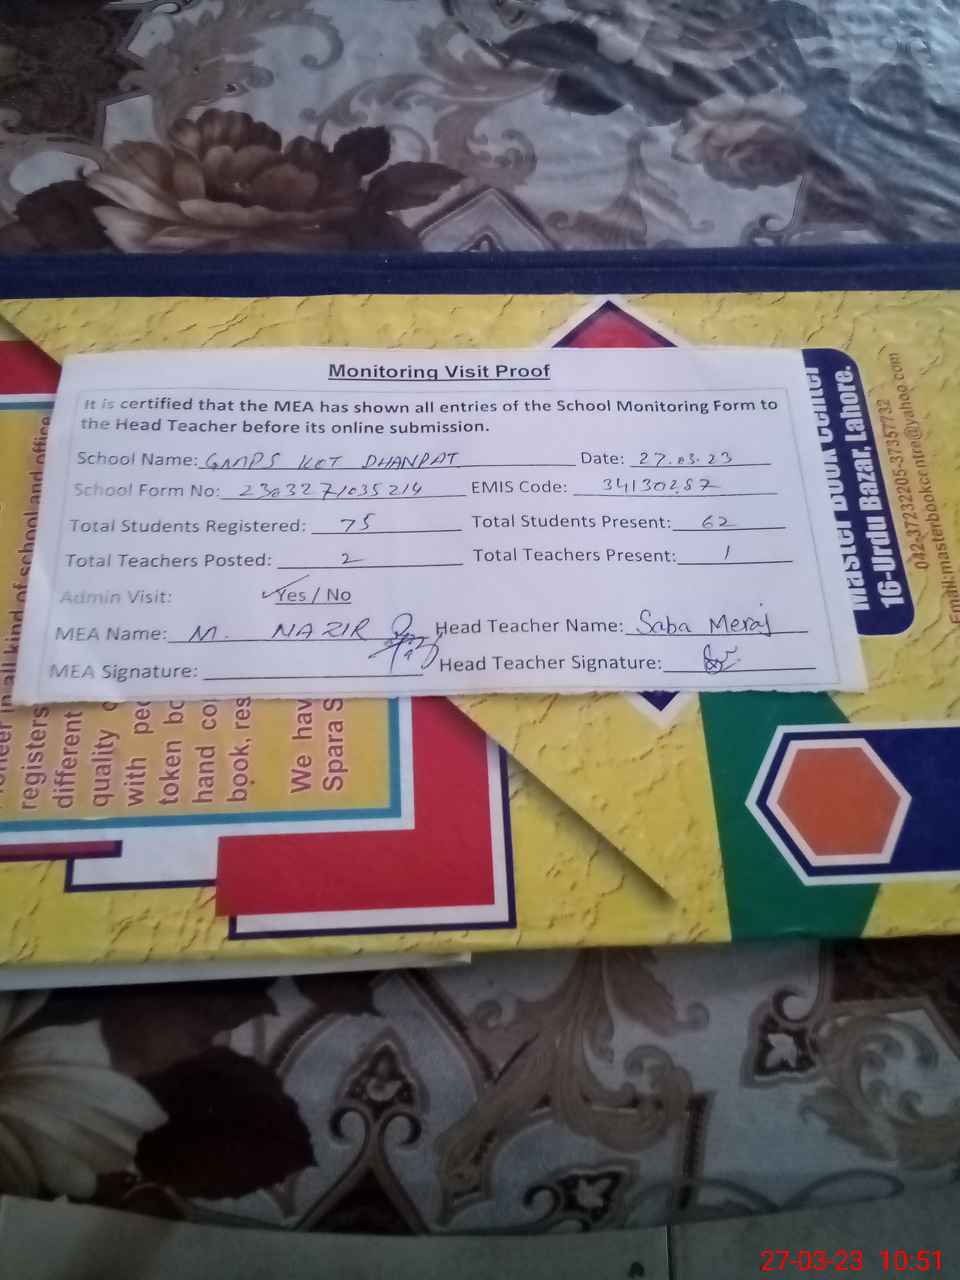 Monitoring Visit Proof
It is certified that the MEA has shown all entries of the School Monitoring Form to
the Head Teacher before its online submission.
School Name: GMPS KOT DHANPAT Date: 27.03.23
School Form No: 2303271035214 EMIS Code: 34130287
Total Students Registered: 75 Total Students Present: 62
Total Teachers Posted: 2 Total Teachers Present: 1
Admin Visit: Yes / No
MEA Name: M. NAZIR Head Teacher Name: Saba Meraj
MEA Signature: Head Teacher Signature:
Master Book Center
16-Urdu Bazar, Lahore.
042-37232205-37357732
Email:masterbookcentre@yahoo.com
in all kind of school and office
registers
different
quality
with
token
hand
book, res
We hav
Spara S
27-03-23 10:51